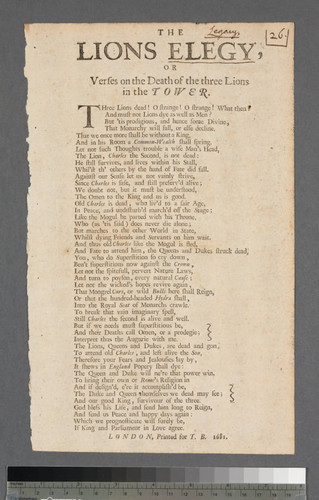 Legacy,
26.
THE
LIONS ELEGY,
OR
Verses on the Death of the three Lions
in the TOWER.
THree Lions dead! O strange! O strange! What then?
And must not Lions dye as well as Men?
But 'tis prodigious, and hence some Divine,
That Monarchy will fall, or else decline.
That we once more shall be without a King,
And in his Room a Common-Wealth shall spring.
Let not such Thoughts trouble a wise Man's Head,
The Lion, Charles the Second, is not dead:
He still survives, and lives within his Stall,
Whil'st th' others by the hand of Fate did fall.
Against our Sense let us not vainly strive,
Since Charles is safe, and still preserv'd alive;
We doubt not, but it must be understood,
The Omen to the King and us is good.
Old Charles is dead, who liv'd to a fair Age,
In Peace, and undisturb'd march'd of the Stage;
Like the Mogul he parted with his Throne,
Who (as 'tis said) does never die alone;
But marches to the other World in State,
Whilst dying Friends and Servants on him wait.
And thus old Charles like the Mogul is fled,
And Fate to attend him, the Queens and Dukes struck dead,
You, who do Superstition so cry down,
Ben't superstitious now against the Crown;
Let not the spiteful, pervert Nature Laws,
And turn to poyson, every natural Cause;
Let not the wicked's hopes survive again,
That Mungrel Curs, or wild Bulls here shall Reign,
Or that the hundred-headed Hydra shall,
Into the Royal Seat of Monarchs crawle.
To break that vain imaginary spell,
Still Charles the second is alive and well.
But if we needs must superstitious be,
And their Deaths call Omen, or a prodegie;
Interpret thus the Augurie with me.
The Lions, Queens and Dukes, are dead and gon,
To attend old Charles, and left alive the Son,
Therefore your Fears and Jealousies lay by,
It shews in England Popery shall dye:
The Queen and Duke will ne're that power win,
To bring their own or Rome's Religion in
And if design'd, e're it accomplish'd be,
The Duke and Queen themselves we dead may see;
And our good King, survivour of the three.
God bless his Life, and send him long to Reign,
And send us Peace and happy days again:
Which we prognosticate will surely be,
If King and Parliament in Love agree.
LONDON, Printed for T. B. 1681.